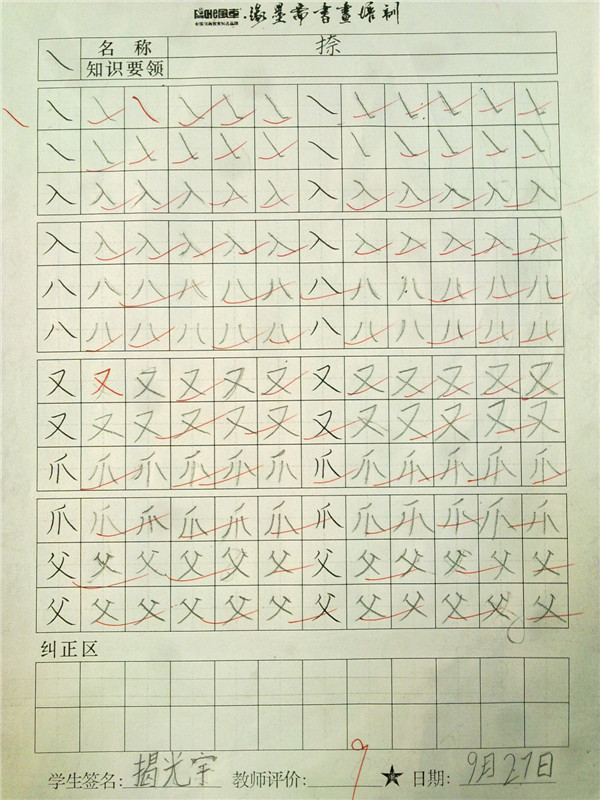 缘墨斋書畫培训
㇏ 名称 捺
知识要领
㇏ ㇏ ㇏ ㇏ ㇏ ㇏ ㇏ ㇏ ㇏ ㇏ ㇏ ㇏
㇏ ㇏ ㇏ ㇏ ㇏ ㇏ ㇏ ㇏ ㇏ ㇏ ㇏ ㇏
入 入 入 入 入 入 入 入 入 入 入 入
入 入 入 入 入 入 入 入 入 入 入 入
八 八 八 八 八 八 八 八 八 八 八 八
八 八 八 八 八 八 八 八 八 八 八 八
又 又 又 又 又 又 又 又 又 又 又 又
又 又 又 又 又 又 又 又 又 又 又 又
爪 爪 爪 爪 爪 爪 爪 爪 爪 爪 爪 爪
爪 爪 爪 爪 爪 爪 爪 爪 爪 爪 爪 爪
父 父 父 父 父 父 父 父 父 父 父 父
父 父 父 父 父 父 父 父 父 父 父 父
纠正区
学生签名: 揭光宇 教师评价: 9 ★ 日期: 9月27日